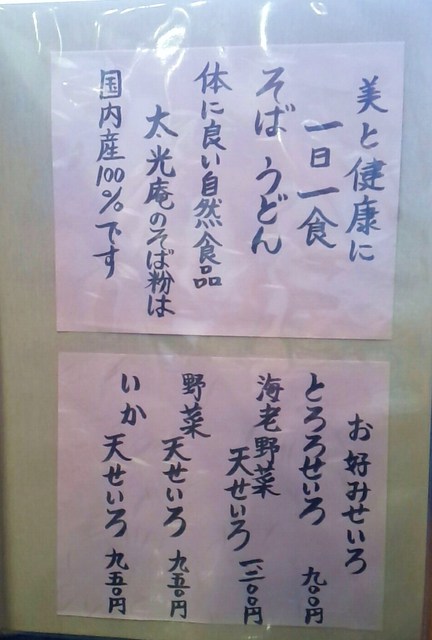 美と健康に
一日一食
そば うどん
体に良い自然食品
太光庵のそば粉は
国内産100%です
お好みせいろ
とろろせいろ 九〇〇円
海老野菜
天せいろ 一二〇〇円
野菜
天せいろ 九五〇円
いか
天せいろ 九五〇円